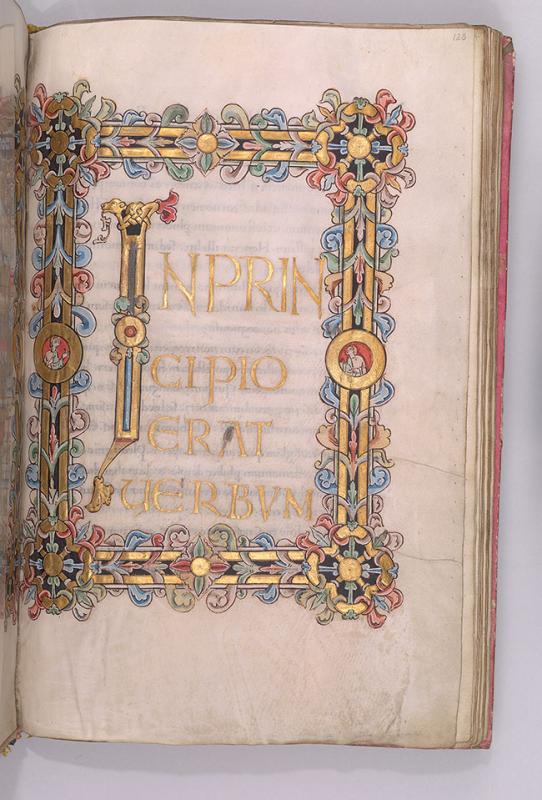 128
INPRIN
CIPIO
ERAT
VERBVM